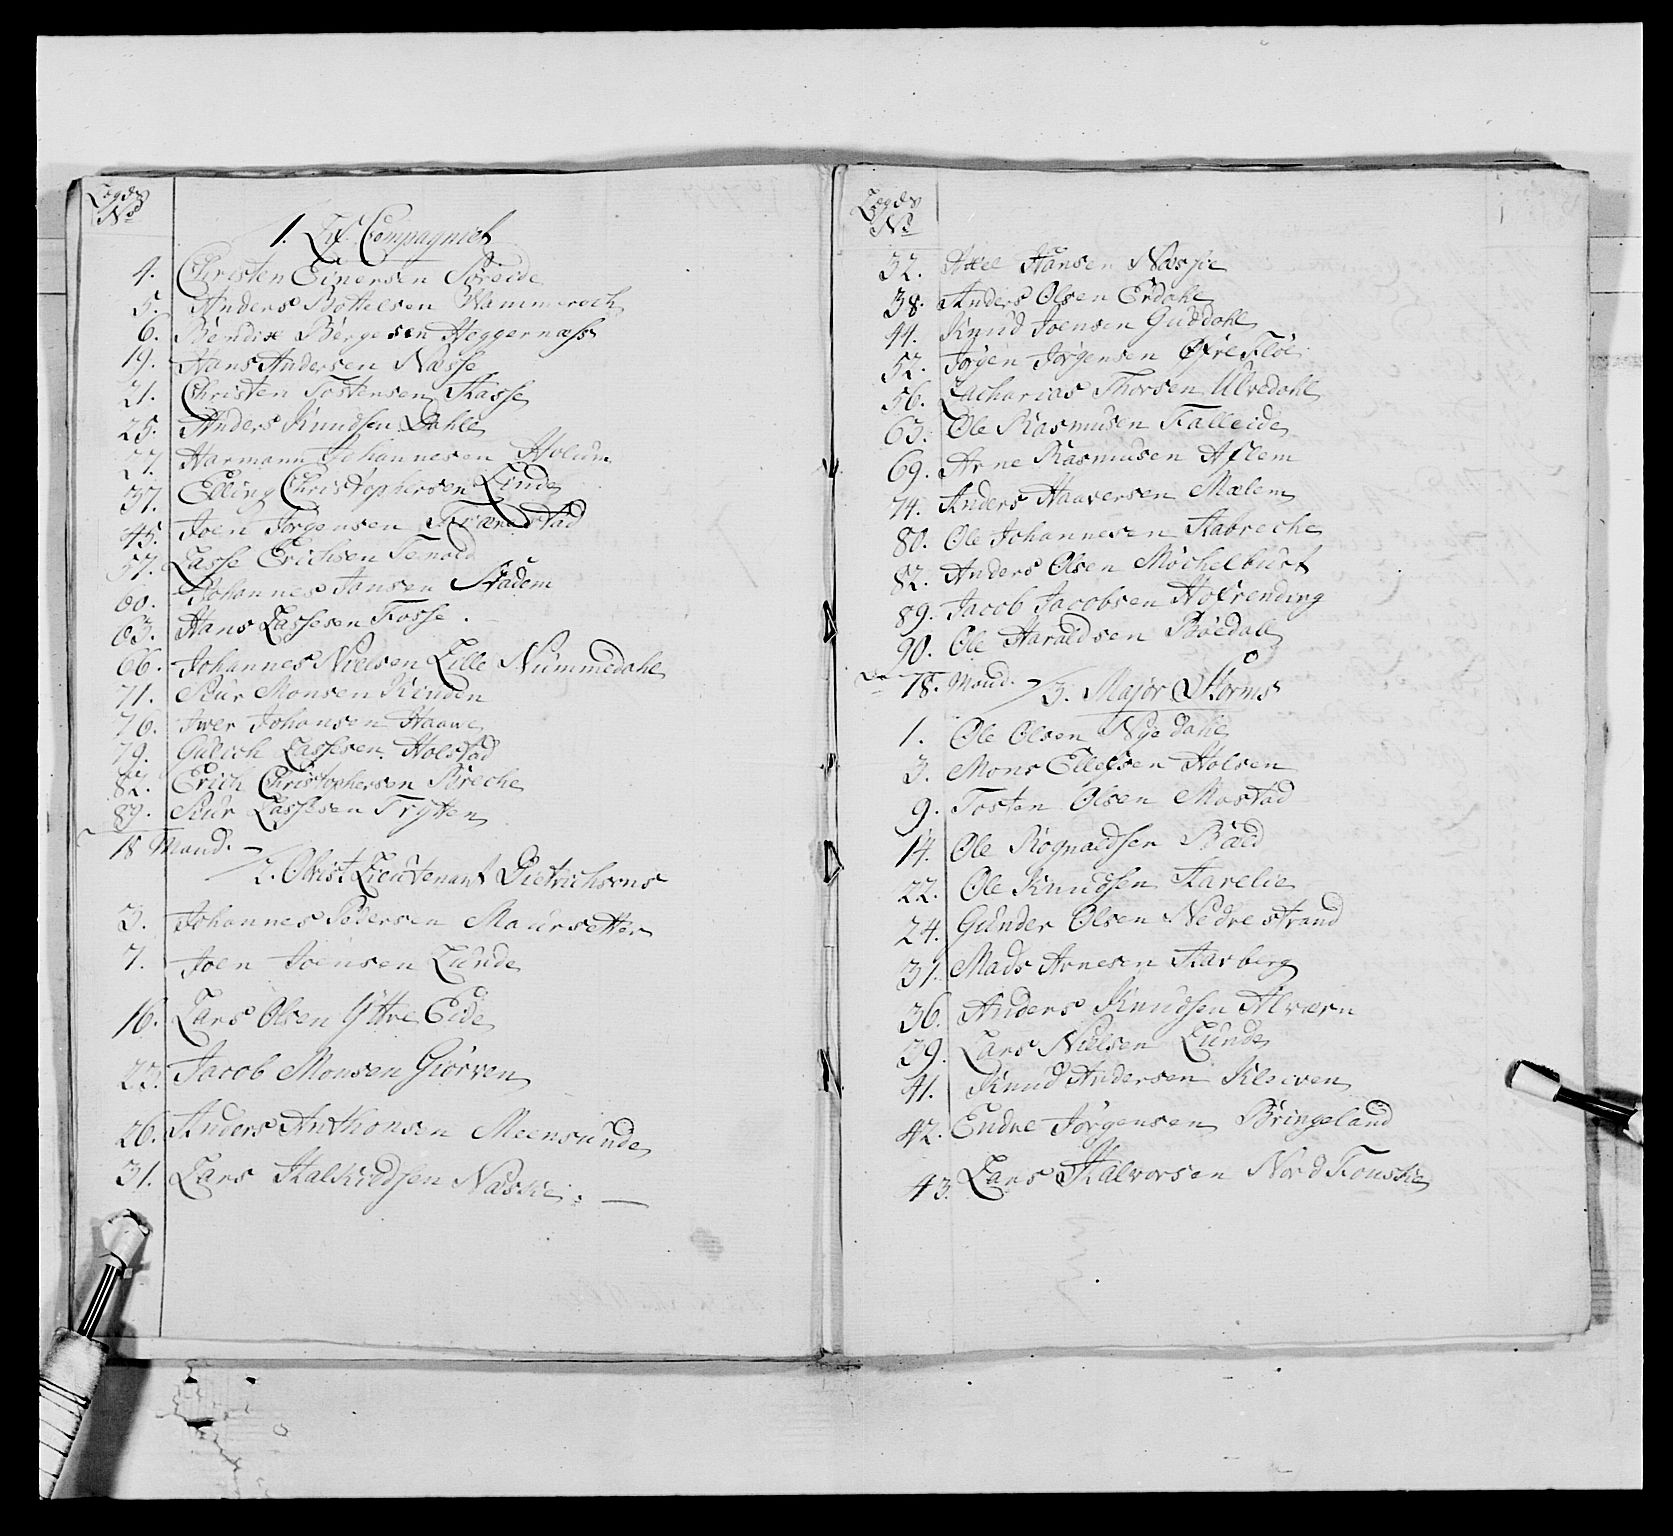 Lægds
No
1. Lif Compagniet
4. Christen Einersen Søreide
5. Anders Bottelsen Hammerach
6. Bendix Børgesen Heggernæss
19. Hans Andersen Næsse
21. Christen Tostensen Skasse
25. Anders Knudsen Dahle
27. Harmann Johannesen Holum
37. Elling Christophersen Linde
45. Joen Jørgensen Trænestad
57. Lasse Erichsen Tenold
60. Johannes Jansen Stadem
63. Hans Lassesen Fosse.
66. Johannes Nielsen Lille Nummedahl
71. Siur Monsen Kinden
76. Iwer Johansen Haave
79. Gulich Lassesen Holstad
82. Erich Christophersen Breche
89. Siur Lassesen Trytten
18 Mand.
2. Obrist Lieutenant Dietrichsons
3. Johannes Pedersen Maursetter
7. Joen Joensen Lunde
16. Lars Olsen Yttre Eide
23. Jacob Monsen Giørven
26. Anders Anthonsen Meensunde
31. Lars Halkildsen Næske.
Lægds
No
32. Axel Hansen Næsje
38. Anders Olsen Erdahl
44. Knud Joensen Guddahl
52. Jørgen Jørgensen Øfre Fløe
56. Zacharias Thorsen Ulvedahl
63. Ole Rasmusen Falleide
69. Arne Rasmusen Aflem
74. Anders Haaversen Mælem
80. Ole Johannesen Aabreche
82. Anders Olsen Mochelbust
89. Jacob Jacobsen Hofrending
90. Ole Haraldsen Bøedal
18. Mand.
3. Major Storms
1. Ole Olsen Nyedahl
3. Mons Ellefsen Holsen
9. Tosten Olsen Mostad
14. Ole Rognaldsen Bald
22. Ole Knudsen Aarelie
24. Gunder Olsen Nedrestrand
31. Mads Arnesen Aarberg
36. Anders Knudsen Alværn
39. Lars Nielsen Lunde
41. Knud Andersen Kleeven
42. Endre Jørgensen Bringeland
43. Lars Halvorsen Nord Fonske